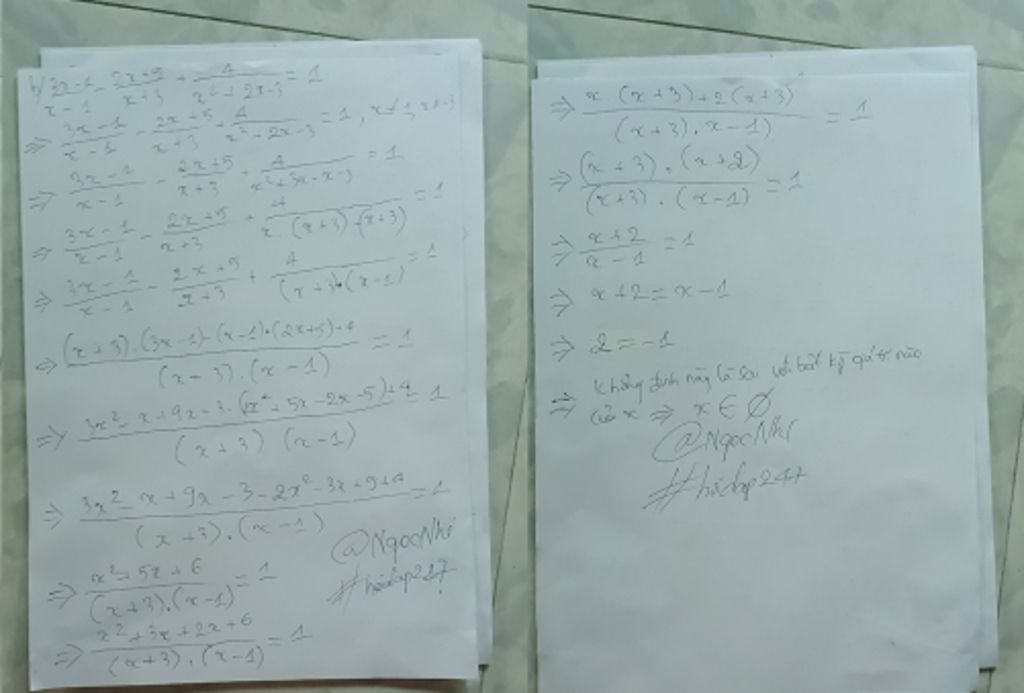 b) (3x-1)/(x-1) - (2x+5)/(x+3) + 4/(x²+2x-3) = 1
=> (3x-1)/(x-1) - (2x+5)/(x+3) + 4/(x²+2x-3) = 1, x≠1, x≠-3
=> (3x-1)/(x-1) - (2x+5)/(x+3) + 4/(x²+3x-x-3) = 1
=> (3x-1)/(x-1) - (2x+5)/(x+3) + 4/(x.(x+3)-(x+3)) = 1
=> (3x-1)/(x-1) - (2x+5)/(x+3) + 4/((x+3).(x-1)) = 1
=> ((x+3).(3x-1)-(x-1).(2x+5)+4)/((x-3).(x-1)) = 1
=> (3x²-x+9x-3-(2x²+5x-2x-5)+4)/((x+3) (x-1)) = 1
=> (3x²-x+9x-3-2x²-3x+9+4)/((x+3).(x-1)) = 1
@NgocNhi
=> (x²+5x+6)/((x+3).(x-1)) = 1
#hoidap247
=> (x²+3x+2x+6)/((x+3).(x-1)) = 1
=> (x.(x+3)+2(x+3))/((x+3).x-1)) = 1
=> ((x+3).(x+2))/((x+3).(x-1)) = 1
=> (x+2)/(x-1) = 1
=> x+2=x-1
=> 2=-1
=> khẳng định này là sai với bất kỳ giá trị nào
của x => x∈∅
@NgocNhi
#hoidap247